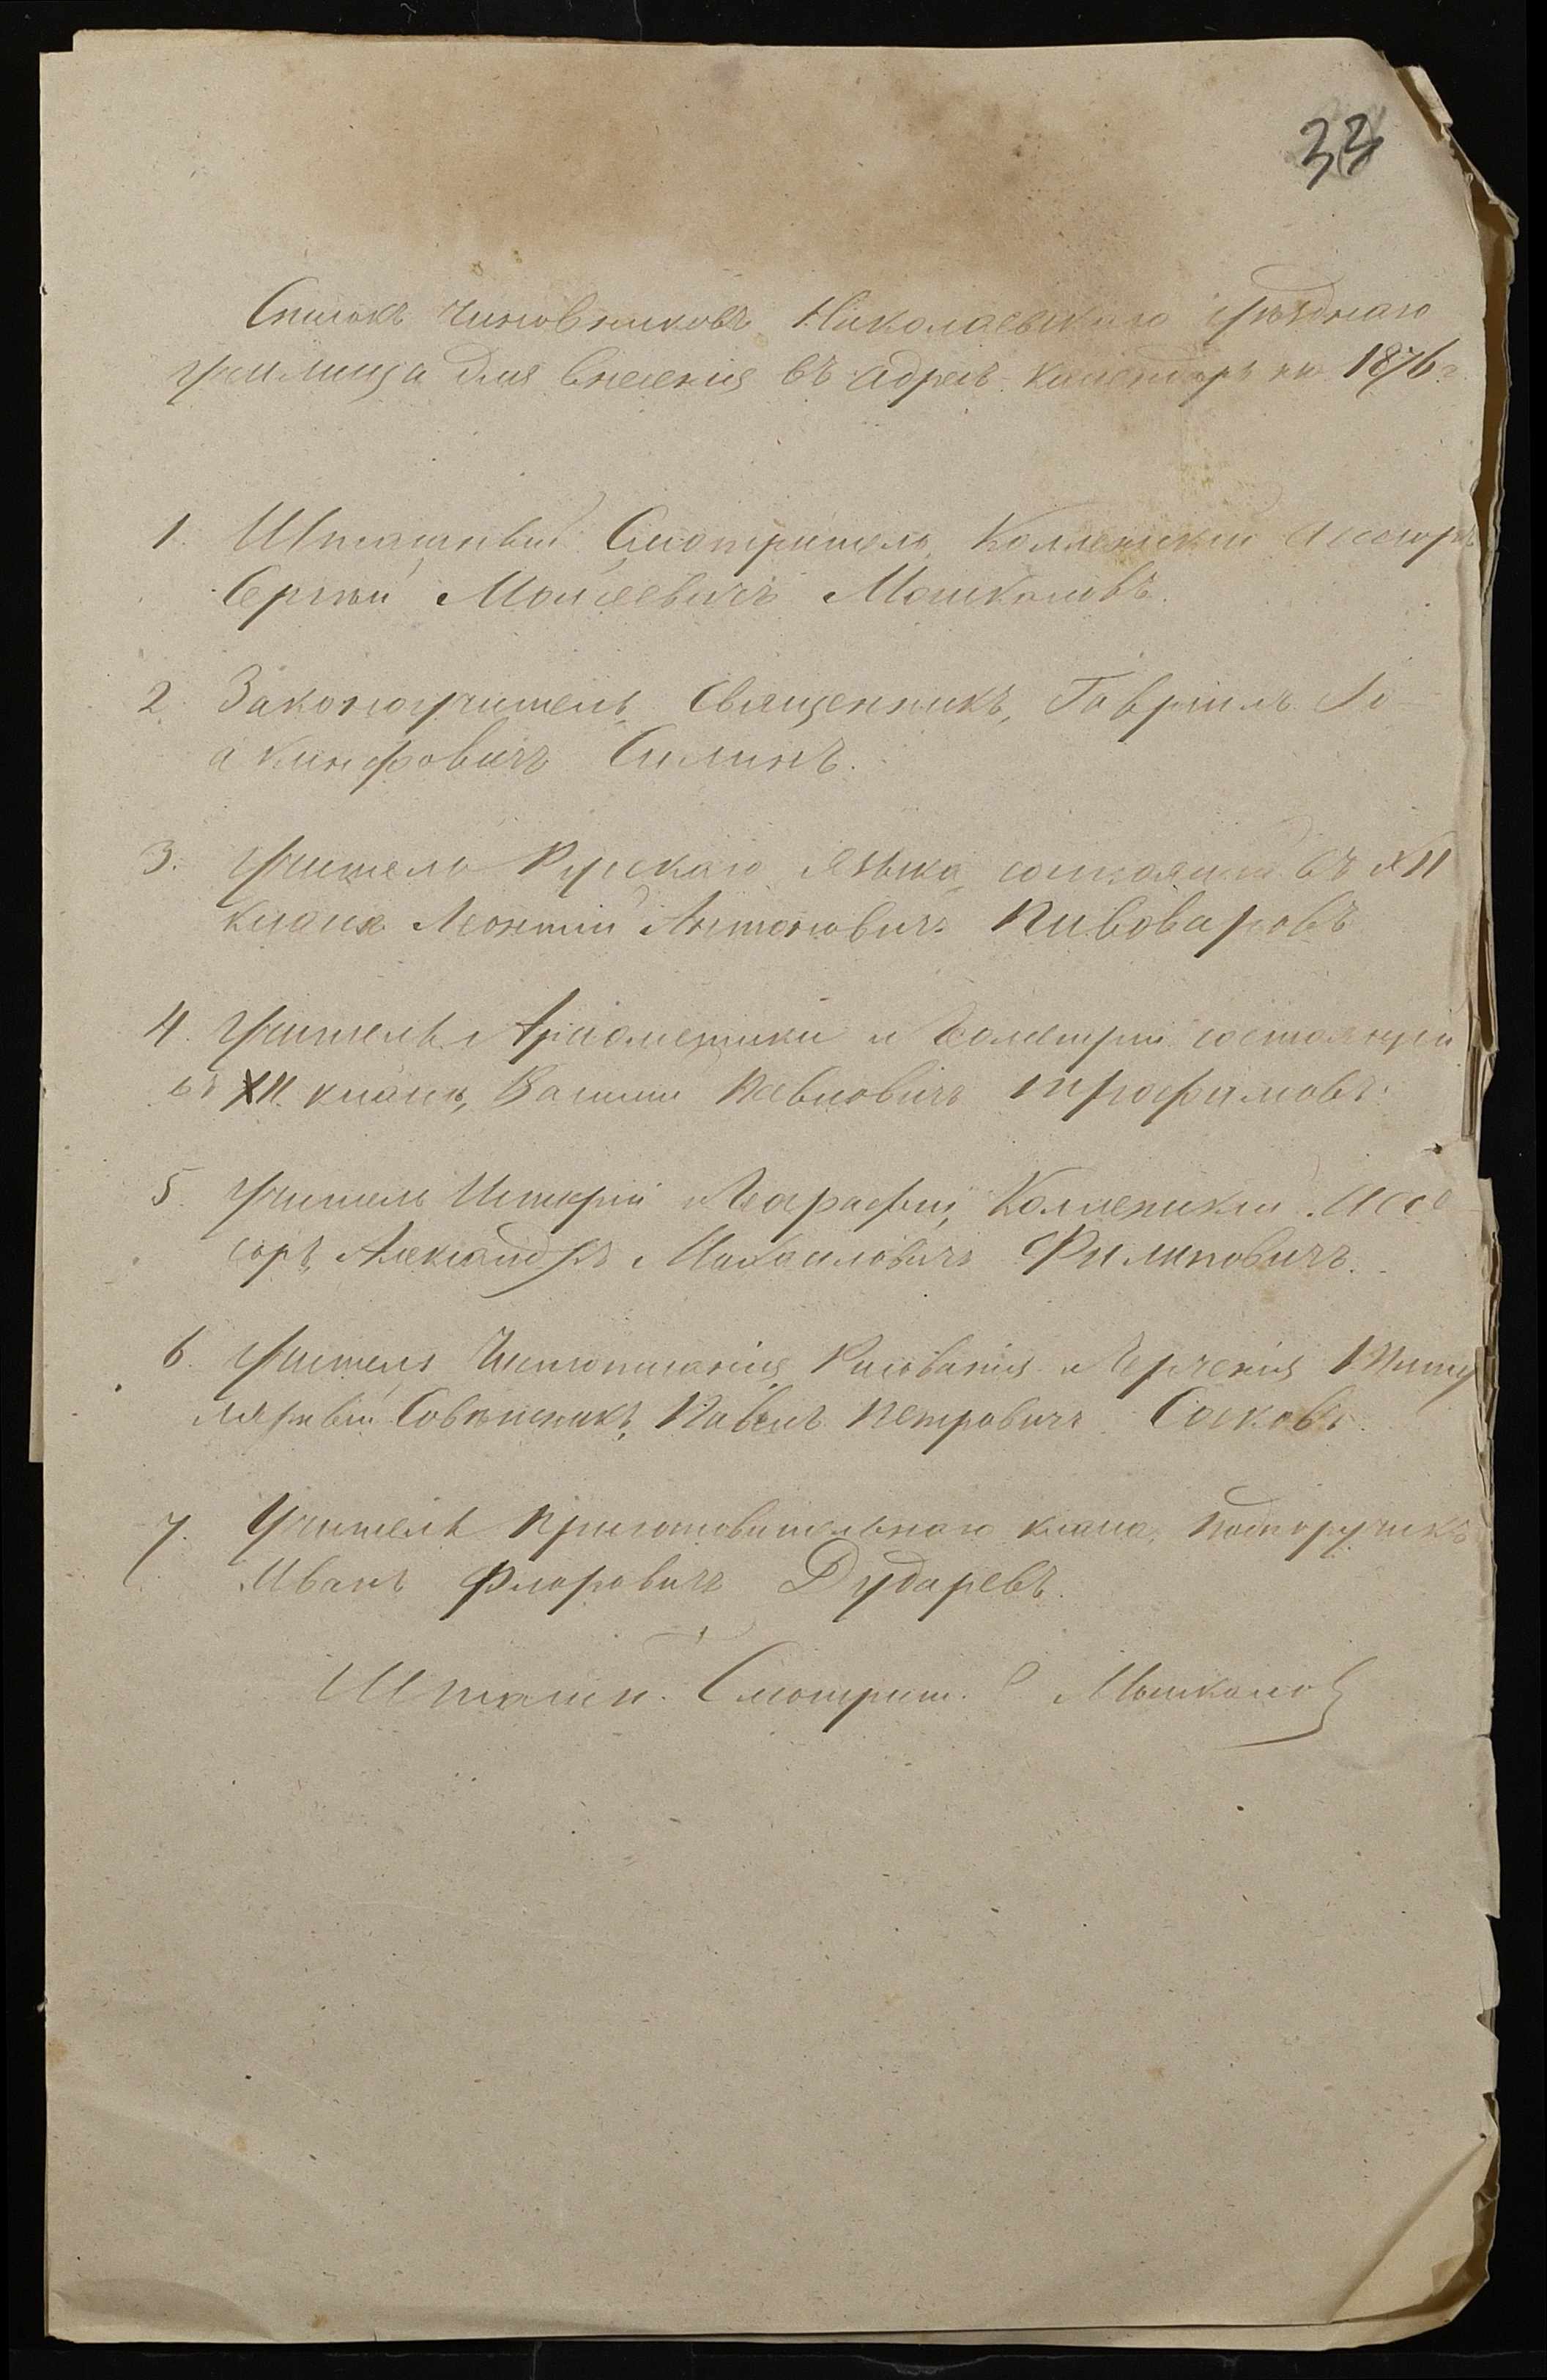 33
Списокъ чиновниковъ Николаевскаго уѣзднаго
училища для внесенія въ Адресъ-Календарь на 1876 г.
1. Штатный Смотритель, Коллежскій Ассесоръ
Сергѣй Моисеевичъ Мошкаловъ.
2. Законоучитель, Священникъ, Гавріилъ Іо-
акинфовичъ Силинъ.
3. Учитель Рускаго языка, состоящій въ XII
классѣ Леонтій Антоновичъ Пивоваровъ
4. Учитель Ариѳметики и Геометріи состоящій
въ XII классѣ, Василій Павловичъ Трофимовъ.
5. Учитель Исторіи и Географіи, Коллежскій Ассе-
соръ, Александръ Михаиловичъ Филиповичъ.
6. Учитель Чистописанія Рисованія и Черченія Титу
лярный Совѣтникъ, Павелъ Петровичъ Сосковъ.
7. Учитель приготовительнаго класса, подпоручикъ
Иванъ Флоровичъ Дударевъ.
Штатн. Смотрит. С.